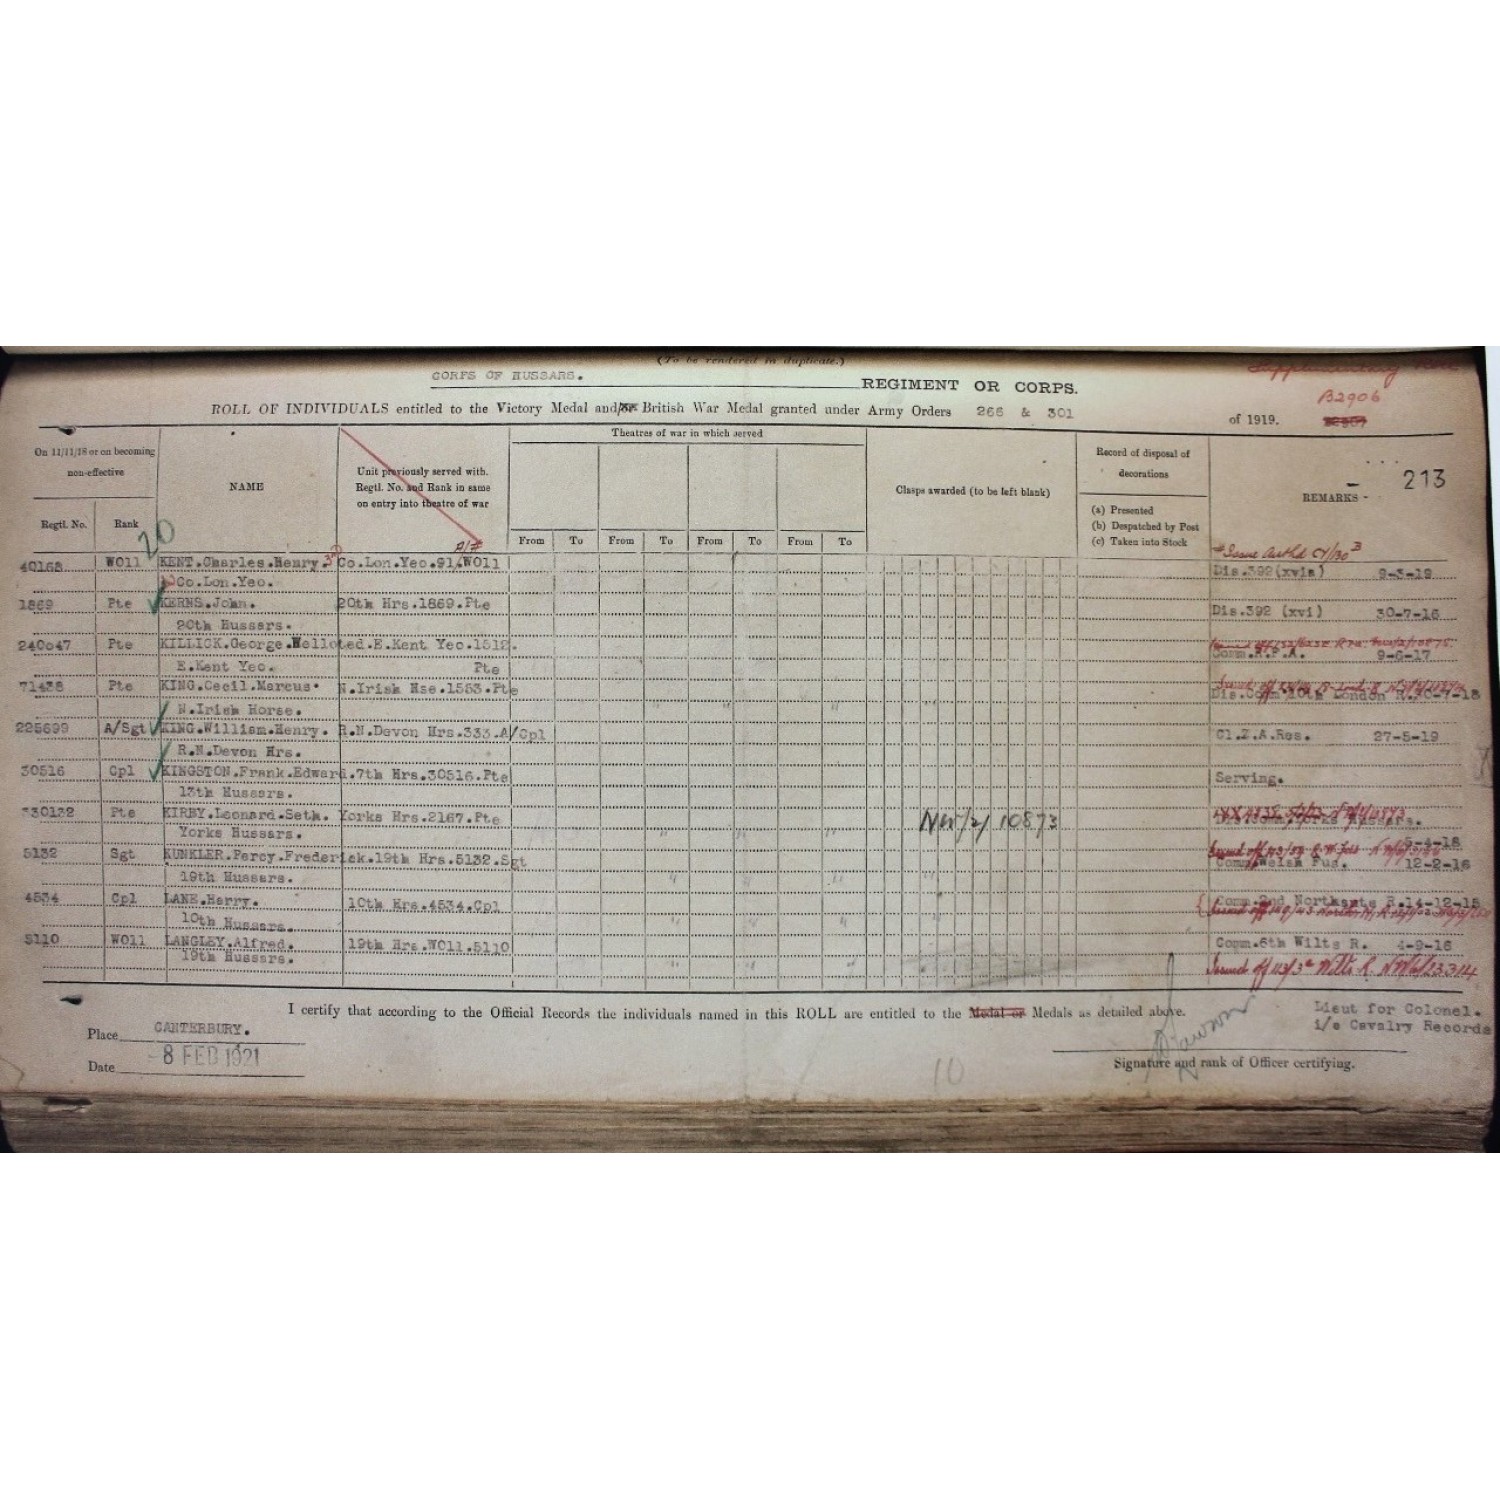 (To be rendered in duplicate.)
CORPS OF HUSSARS. REGIMENT OR CORPS.
Supplementary Roll
B2906
ROLL OF INDIVIDUALS entitled to the Victory Medal and/or British War Medal granted under Army Orders 266 & 301 of 1919.
213
On 11/11/18 or on becoming non-effective
Regtl. No. Rank
NAME
Unit previously served with. Regtl. No. and Rank in same on entry into theatre of war
Theatres of war in which served
From To From To From To From To
Clasps awarded (to be left blank)
Record of disposal of decorations
(a) Presented
(b) Despatched by Post
(c) Taken into Stock
REMARKS
20
Issue Auth'd CY/130
40168 WO11 KENT.Charles.Henry. 3rd Co.Lon.Yeo.91.WO11 Dis.392(xvia) 9-3-19
Co.Lon.Yeo.
1869 Pte KERNS.John. 20th Hrs.1869.Pte Dis.392 (xvi) 30-7-16
20th Hussars.
240047 Pte KILLICK.George.Welloted.E.Kent Yeo.1512. Comm.R.F.A. 9-6-17
E.Kent Yeo. Pte
71438 Pte KING.Cecil.Marcus. N.Irish Hse.1553.Pte Dis.Comm 20th London R.30-7-18
N.Irish Horse.
225699 A/Sgt KING.William.Henry. R.N.Devon Hrs.333.A/Cpl Cl.Z.A.Res. 27-5-19
R.N.Devon Hrs.
30516 Cpl KINGSTON.Frank.Edward.7th Hrs.30516.Pte Serving.
13th Hussars.
330132 Pte KIRBY.Leonard.Seth. Yorks Hrs.2167.Pte NW/2/10873 Hussars.
Yorks Hussars. 5-4-18
5132 Sgt KUNKLER.Percy.Frederick.19th Hrs.5132.Sgt Comm.Welsh Fus. 12-2-16
19th Hussars.
4534 Cpl LANE.Harry. 10th Hrs.4534.Cpl Comm.2nd Northants R.14-12-15
10th Hussars.
5110 WO11 LANGLEY.Alfred. 19th Hrs.WO11.5110 Comm.6th Wilts R. 4-9-16
19th Hussars. Issued off 113/3a Wilts R. NW/6/23314
I certify that according to the Official Records the individuals named in this ROLL are entitled to the Medal or Medals as detailed above.
Lieut for Colonel.
i/c Cavalry Records
Place CANTERBURY.
Date -8 FEB 1921
Signature and rank of Officer certifying.
10